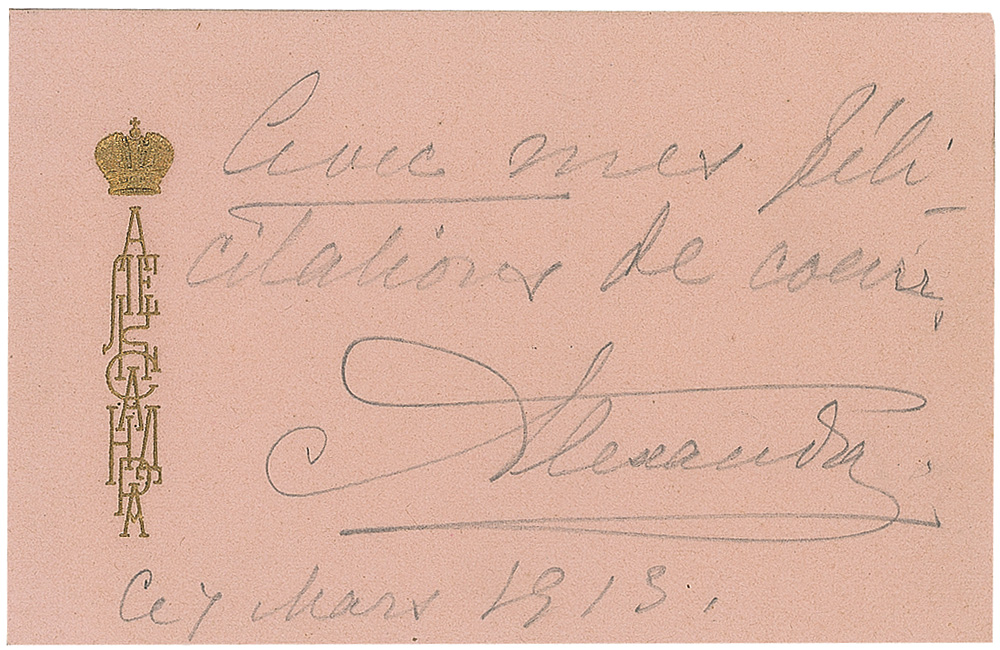 АЛЕКСАНДРА
Avec mes féli
citations de coeur,
Alexandra.
Ce 7 Mars 1913.